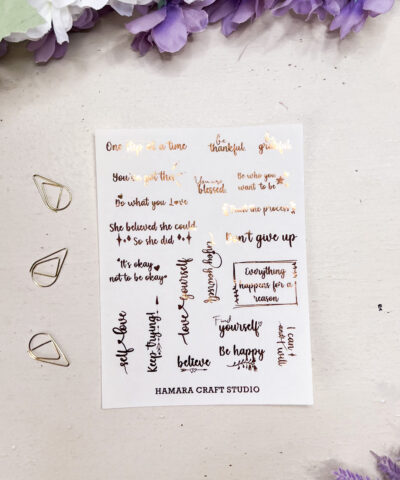 One step at a time
be
thankful
grateful
You've got this
You are
blessed
Be who you
want to be
Do what you Love
the process
She believed she could
So she did
Don't give up
enjoy yourself
"It's okay
not to be okay"
love yourself
Everything
happens for a
reason
self love
Keep trying!
Find
yourself
I can
and I will
believe
Be happy
HAMARA CRAFT STUDIO